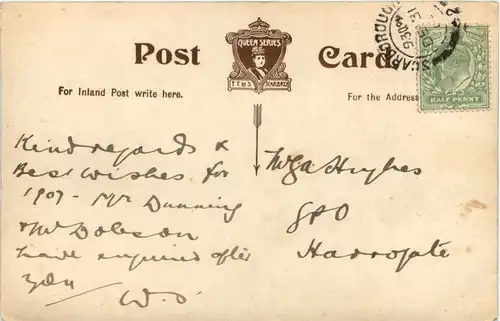 Post Card
QUEEN SERIES
T.T & S SCARBRO
For Inland Post write here.
For the Address
SCARBOROUGH
9.30 PM
DE 31
HALF PENNY
Kind regards &
Best wishes for
1907 - Mr Dunning
& Mr Dobson
have enquired after
you
W.S.
Hughes
GPO
Harrogate